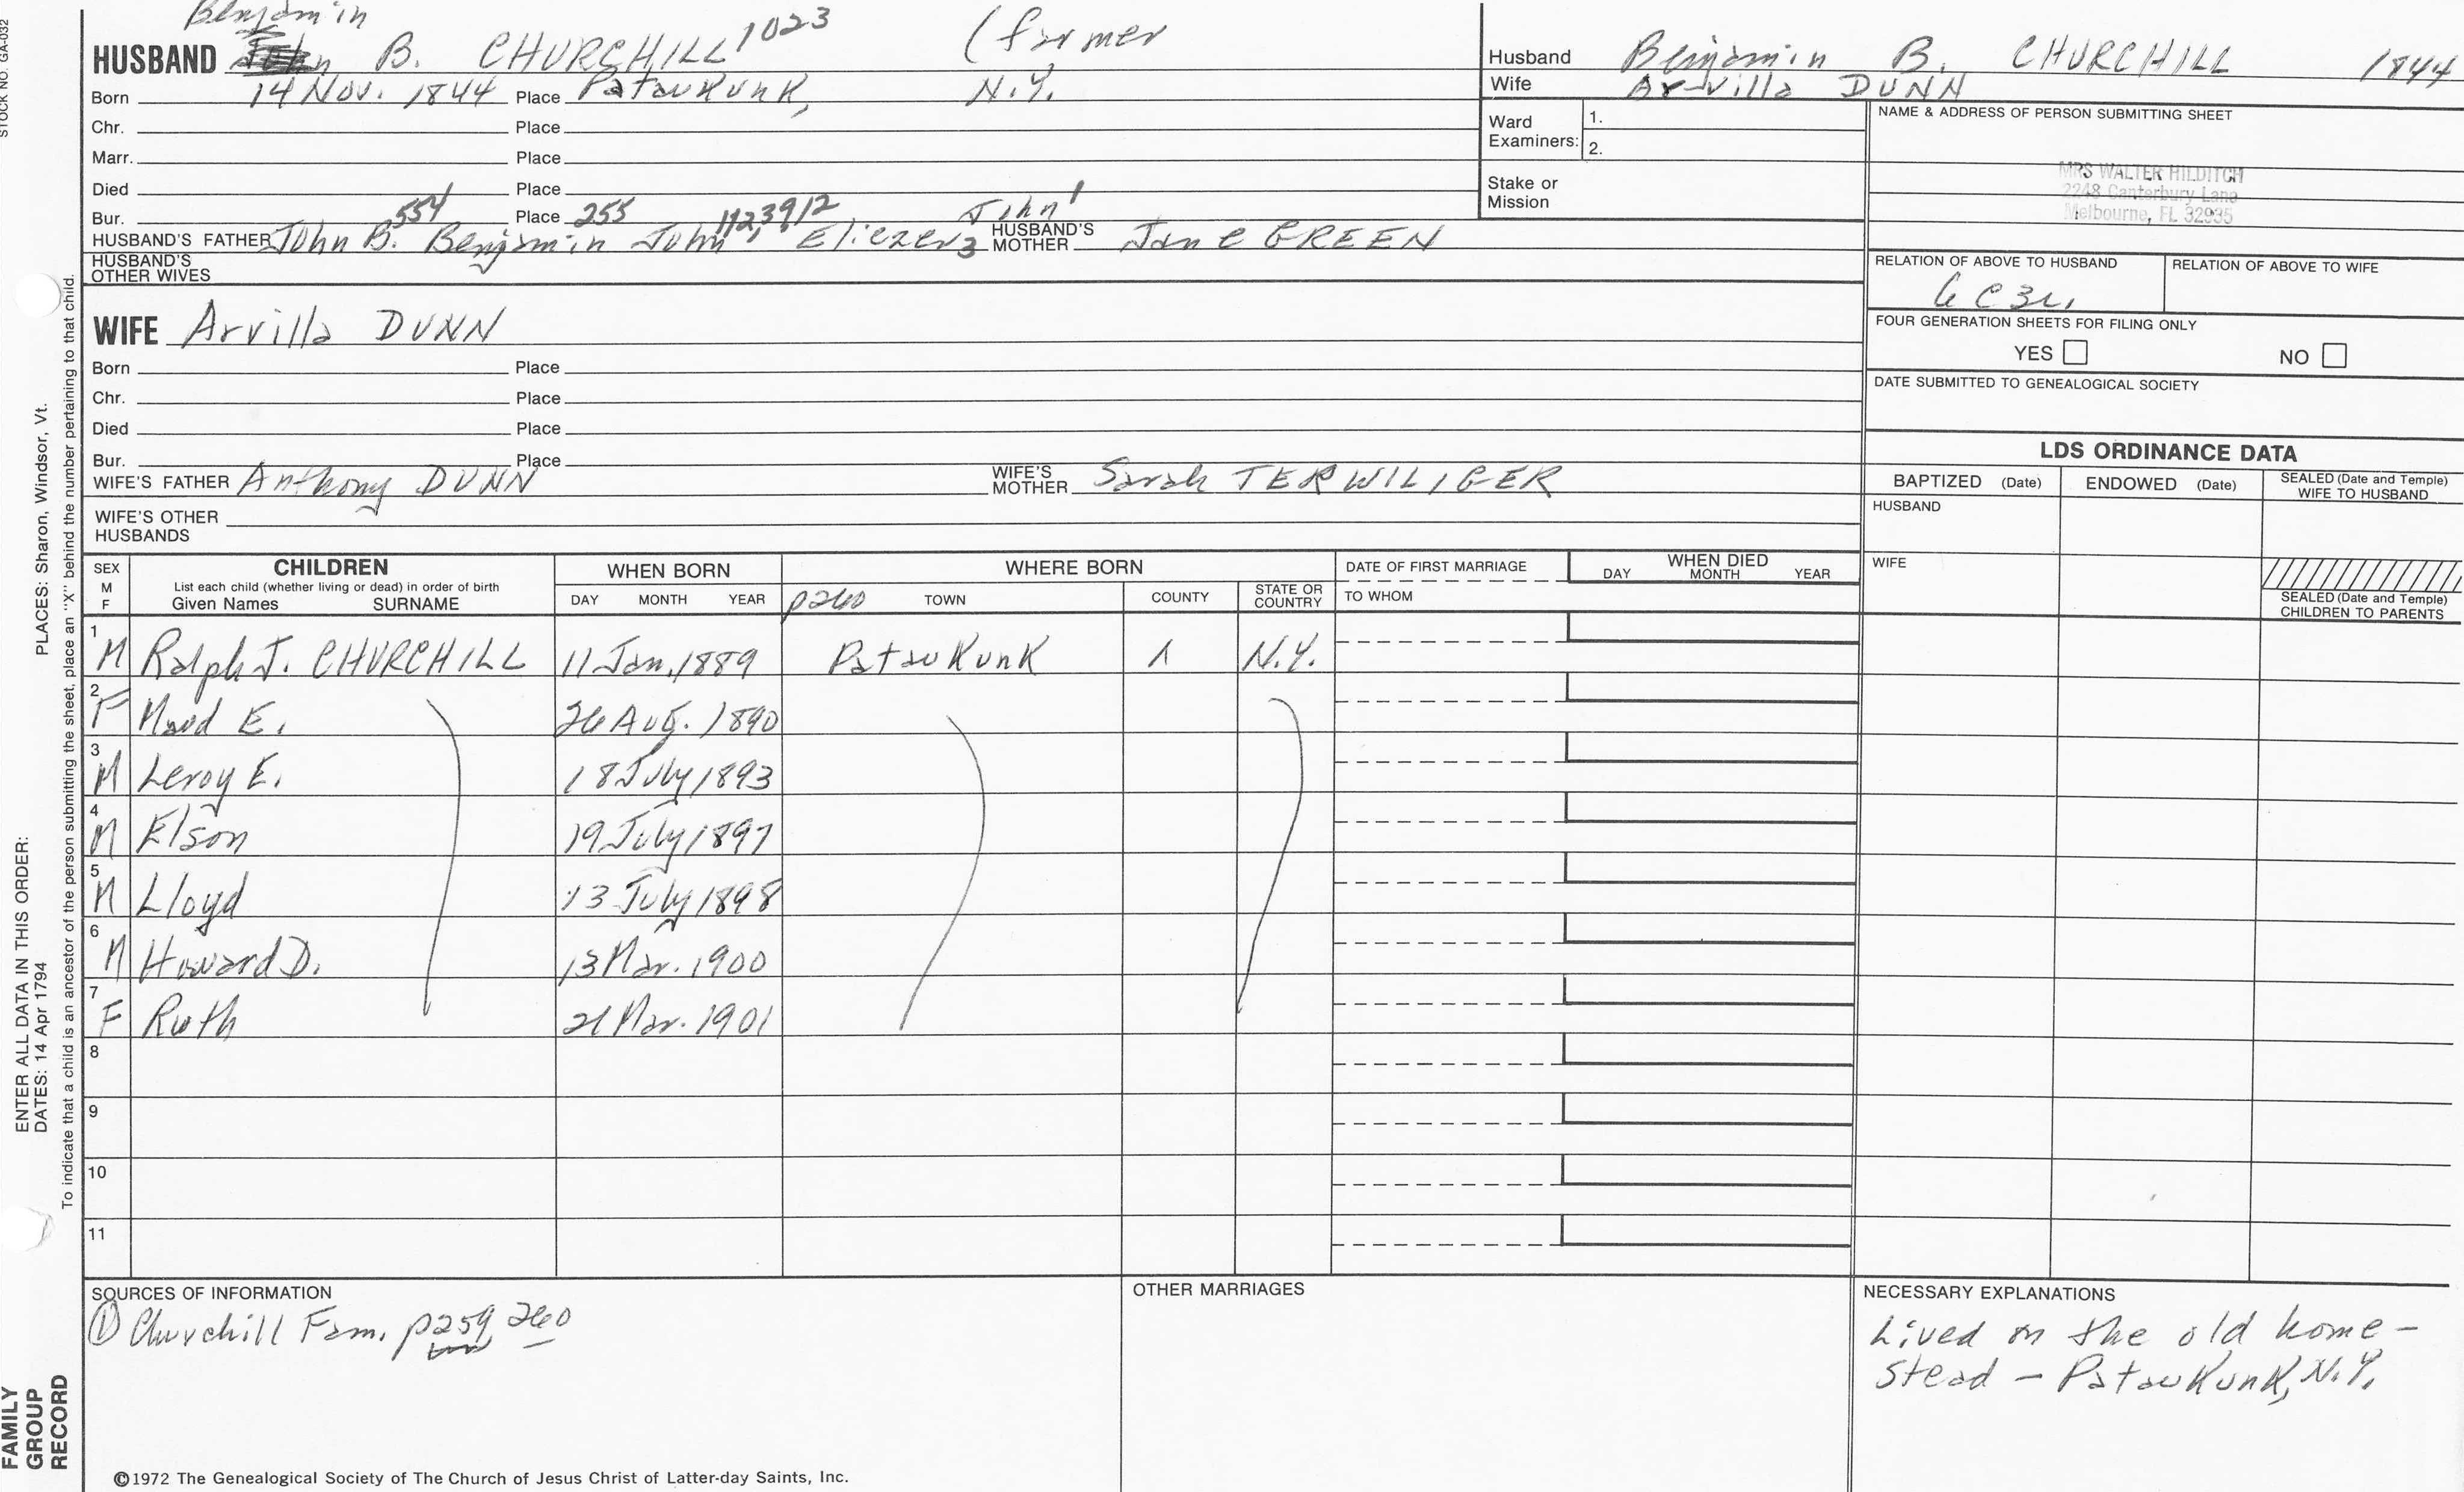 STOCK NO. GA-032
Benjamin
HUSBAND John B. CHURCHILL 1023 (farmer
Born 14 Nov. 1844 Place Pataukunk, N.Y.
Chr. Place
Marr. Place
Died Place
Bur. Place
554 255 John 1
HUSBAND'S FATHER John B. Benjamin John Eliezer 3 HUSBAND'S MOTHER Jane GREEN
HUSBAND'S OTHER WIVES
WIFE Arvilla DUNN
Born Place
Chr. Place
Died Place
Bur. Place
WIFE'S FATHER Anthony DUNN WIFE'S MOTHER Sarah TERWILIGER
WIFE'S OTHER HUSBANDS
Husband Benjamin B. CHURCHILL 1844
Wife Arvilla DUNN
Ward Examiners: 1.
2.
Stake or Mission
NAME & ADDRESS OF PERSON SUBMITTING SHEET
MRS WALTER HILDITCH
2248 Canterbury Lane
Melbourne, FL 32935
RELATION OF ABOVE TO HUSBAND RELATION OF ABOVE TO WIFE
6C3R
FOUR GENERATION SHEETS FOR FILING ONLY
YES NO
DATE SUBMITTED TO GENEALOGICAL SOCIETY
LDS ORDINANCE DATA
BAPTIZED (Date) ENDOWED (Date) SEALED (Date and Temple) WIFE TO HUSBAND
HUSBAND
WIFE
SEALED (Date and Temple) CHILDREN TO PARENTS
SEX M F CHILDREN WHEN BORN WHERE BORN DATE OF FIRST MARRIAGE WHEN DIED
List each child (whether living or dead) in order of birth
Given Names SURNAME DAY MONTH YEAR p260 TOWN COUNTY STATE OR COUNTRY TO WHOM DAY MONTH YEAR
1 M Ralph J. CHURCHILL 11 Jan. 1889 Pataukunk N.Y.
2 F Maud E. 26 Aug. 1890
3 M Leroy E. 18 July 1893
4 M Elson 19 July 1897
5 M Lloyd 13 July 1898
6 M Howard D. 13 Mar. 1900
7 F Ruth 21 Mar. 1901
8
9
10
11
SOURCES OF INFORMATION
① Churchill Fam. p259, 260
OTHER MARRIAGES
NECESSARY EXPLANATIONS
Lived on the old home-
stead - Pataukunk, N.Y.
©1972 The Genealogical Society of The Church of Jesus Christ of Latter-day Saints, Inc.
FAMILY GROUP RECORD
ENTER ALL DATA IN THIS ORDER:
DATES: 14 Apr 1794
PLACES: Sharon, Windsor, Vt.
To indicate that a child is an ancestor of the person submitting the sheet, place an "X" behind the number pertaining to that child.